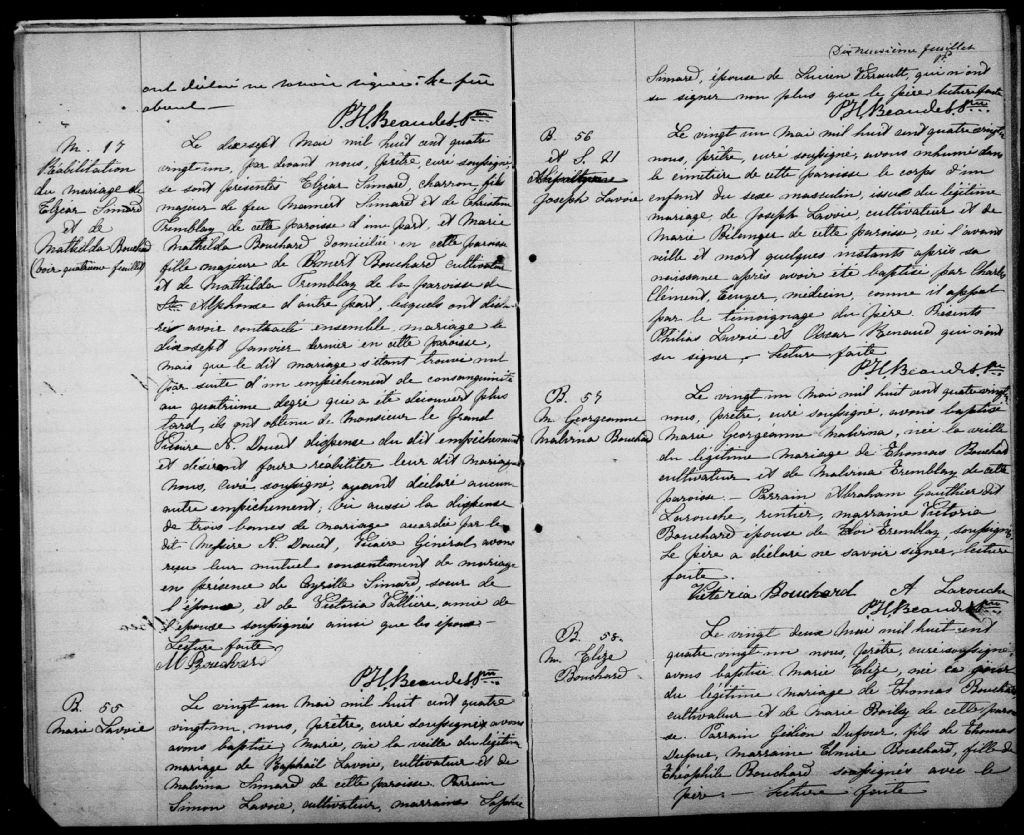 ont déclaré ne savoir signer. Le père
absent —
P.H. Beaudet Ptre
M. 17
Réabilitation
du mariage de
Elzéar Simard
et de
Mathilda Bouchard
(voir quatrième feuillet)
Le dix-sept Mai mil huit cent quatre
vingt-un, par devant nous, prêtre, curé soussigné,
se sont présentés Elzéar Simard, charron, fils
majeur de feu Mamert Simard et de Célestine
Tremblay de cette paroisse d'une part, et Marie
Mathilda Bouchard domiciliée en cette paroisse
fille majeure de Bouchard cultivateur
et de Mathilda Tremblay de la paroisse de
St Alphonse d'autre part, lesquels ont décla-
ré avoir contracté ensemble, mariage le
dix-sept Janvier dernier en cette paroisse,
mais que le dit mariage s'étant trouvé nul
par suite d'un empêchement de consanguinité
au quatrième degré qui a été découvert plus
tard, ils ont obtenu de Monsieur le Grand
Vicaire N. Doucet dispense du dit empêchement
et désirant faire réabiliter leur dit mariage
nous, curé soussigné, ayant déclaré aucun
autre empêchement, vu aussi la dispense
de trois bancs de mariage accordée par le
dit Messire N. Doucet, Vicaire Général, avons
reçu leur mutuel consentement de mariage
en présence de Cyrille Simard, soeur de
l'épouse, et de Victoria Vallière, amie de
l'épouse soussignés ainsi que les époux —
Lecture faite
M Bouchard
P.H. Beaudet Ptre
B. 55
Marie Lavoie
Le vingt un Mai mil huit cent quatre
vingt-un, nous, prêtre, curé soussigné, avons
avons baptisé, Marie, née la veille du légitime
mariage de Raphaïl Lavoie, cultivateur et de
Malvina Simard de cette paroisse. Parrain
Simon Lavoie, cultivateur, marraine Sophie
Dix neuvième feuillet
Simard, épouse de Lucien Verrault, qui n'ont
su signer non plus que le père lecture faite
P.H. Beaudet Ptre
B. 56
et S. 21
Joseph Lavoie
Le vingt un Mai mil huit cent quatre vingt
nous, prêtre, curé soussigné, avons inhumé dans
le cimetière de cette paroisse le corps d'un
enfant du sexe masculin, issu du légitime
mariage de Joseph Lavoie, cultivateur et de
Marie Bélanger de cette paroisse, né l'avant
veille et mort quelques instants après sa
naissance après avoir été baptisé par Charles
Clément, Euger, médecin, comme il appert
par le témoignage du père. Présents
Philias Lavoie et Renaud qui n'ont
su signer — Lecture faite
P.H. Beaudet Ptre
B. 57
M. Georgeanne
Malvina Bouchard
Le vingt un Mai mil huit cent quatre vingt
nous, prêtre, curé soussigné, avons baptisé
Marie Georgéanne Malvina, née la veille
du légitime mariage de Thomas Bouchard
cultivateur et de Malvina Tremblay de cette
paroisse — Parrain Abraham Gauthier dit
Larouche, rentier, marraine Victoria
Bouchard épouse de Eloi Tremblay, soussignés
Le père a déclaré ne savoir signer, lecture
faite.
Victoria Bouchard A Larouche
P.H. Beaudet Ptre
B. 58.
M. Elize
Bouchard
Le vingt deux Mai mil huit cent
quatre vingt-un nous, prêtre, curé soussigné,
avons baptisé Marie Elize, née ce jour
du légitime mariage de Thomas Bouchard
cultivateur et de Marie Boily de cette parois-
se. Parrain Gédéon Dufour, fils de Thomas
Dufour, marraine Elmire Bouchard, fille de
Théophile Bouchard soussignés avec le
père — Lecture faite